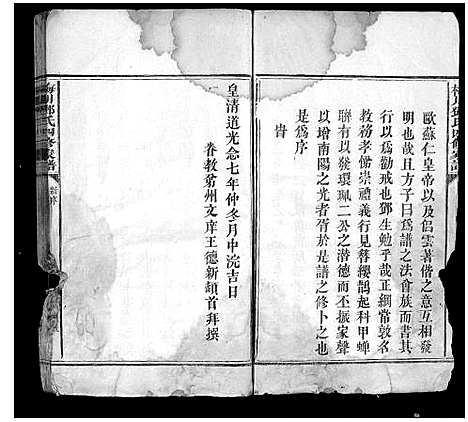 歐蘇仁皇帝以及侶雲著偕之意互相發
明也哉且方子曰爲譜之法會族而書其
行以爲勸戒也鄧生勉乎哉正綱常敦名
教務孝悌崇禮義行見簪纓鵲起科甲蟬
聯有以發環珮二公之潛德而丕振家聲
以增南陽之光者胥於是譜之修卜之也
是爲序
旹
皇清道光念七年仲冬月中浣吉日
眷教弟州文庠王德新頓首拜撰
梅川鄧氏四修家譜